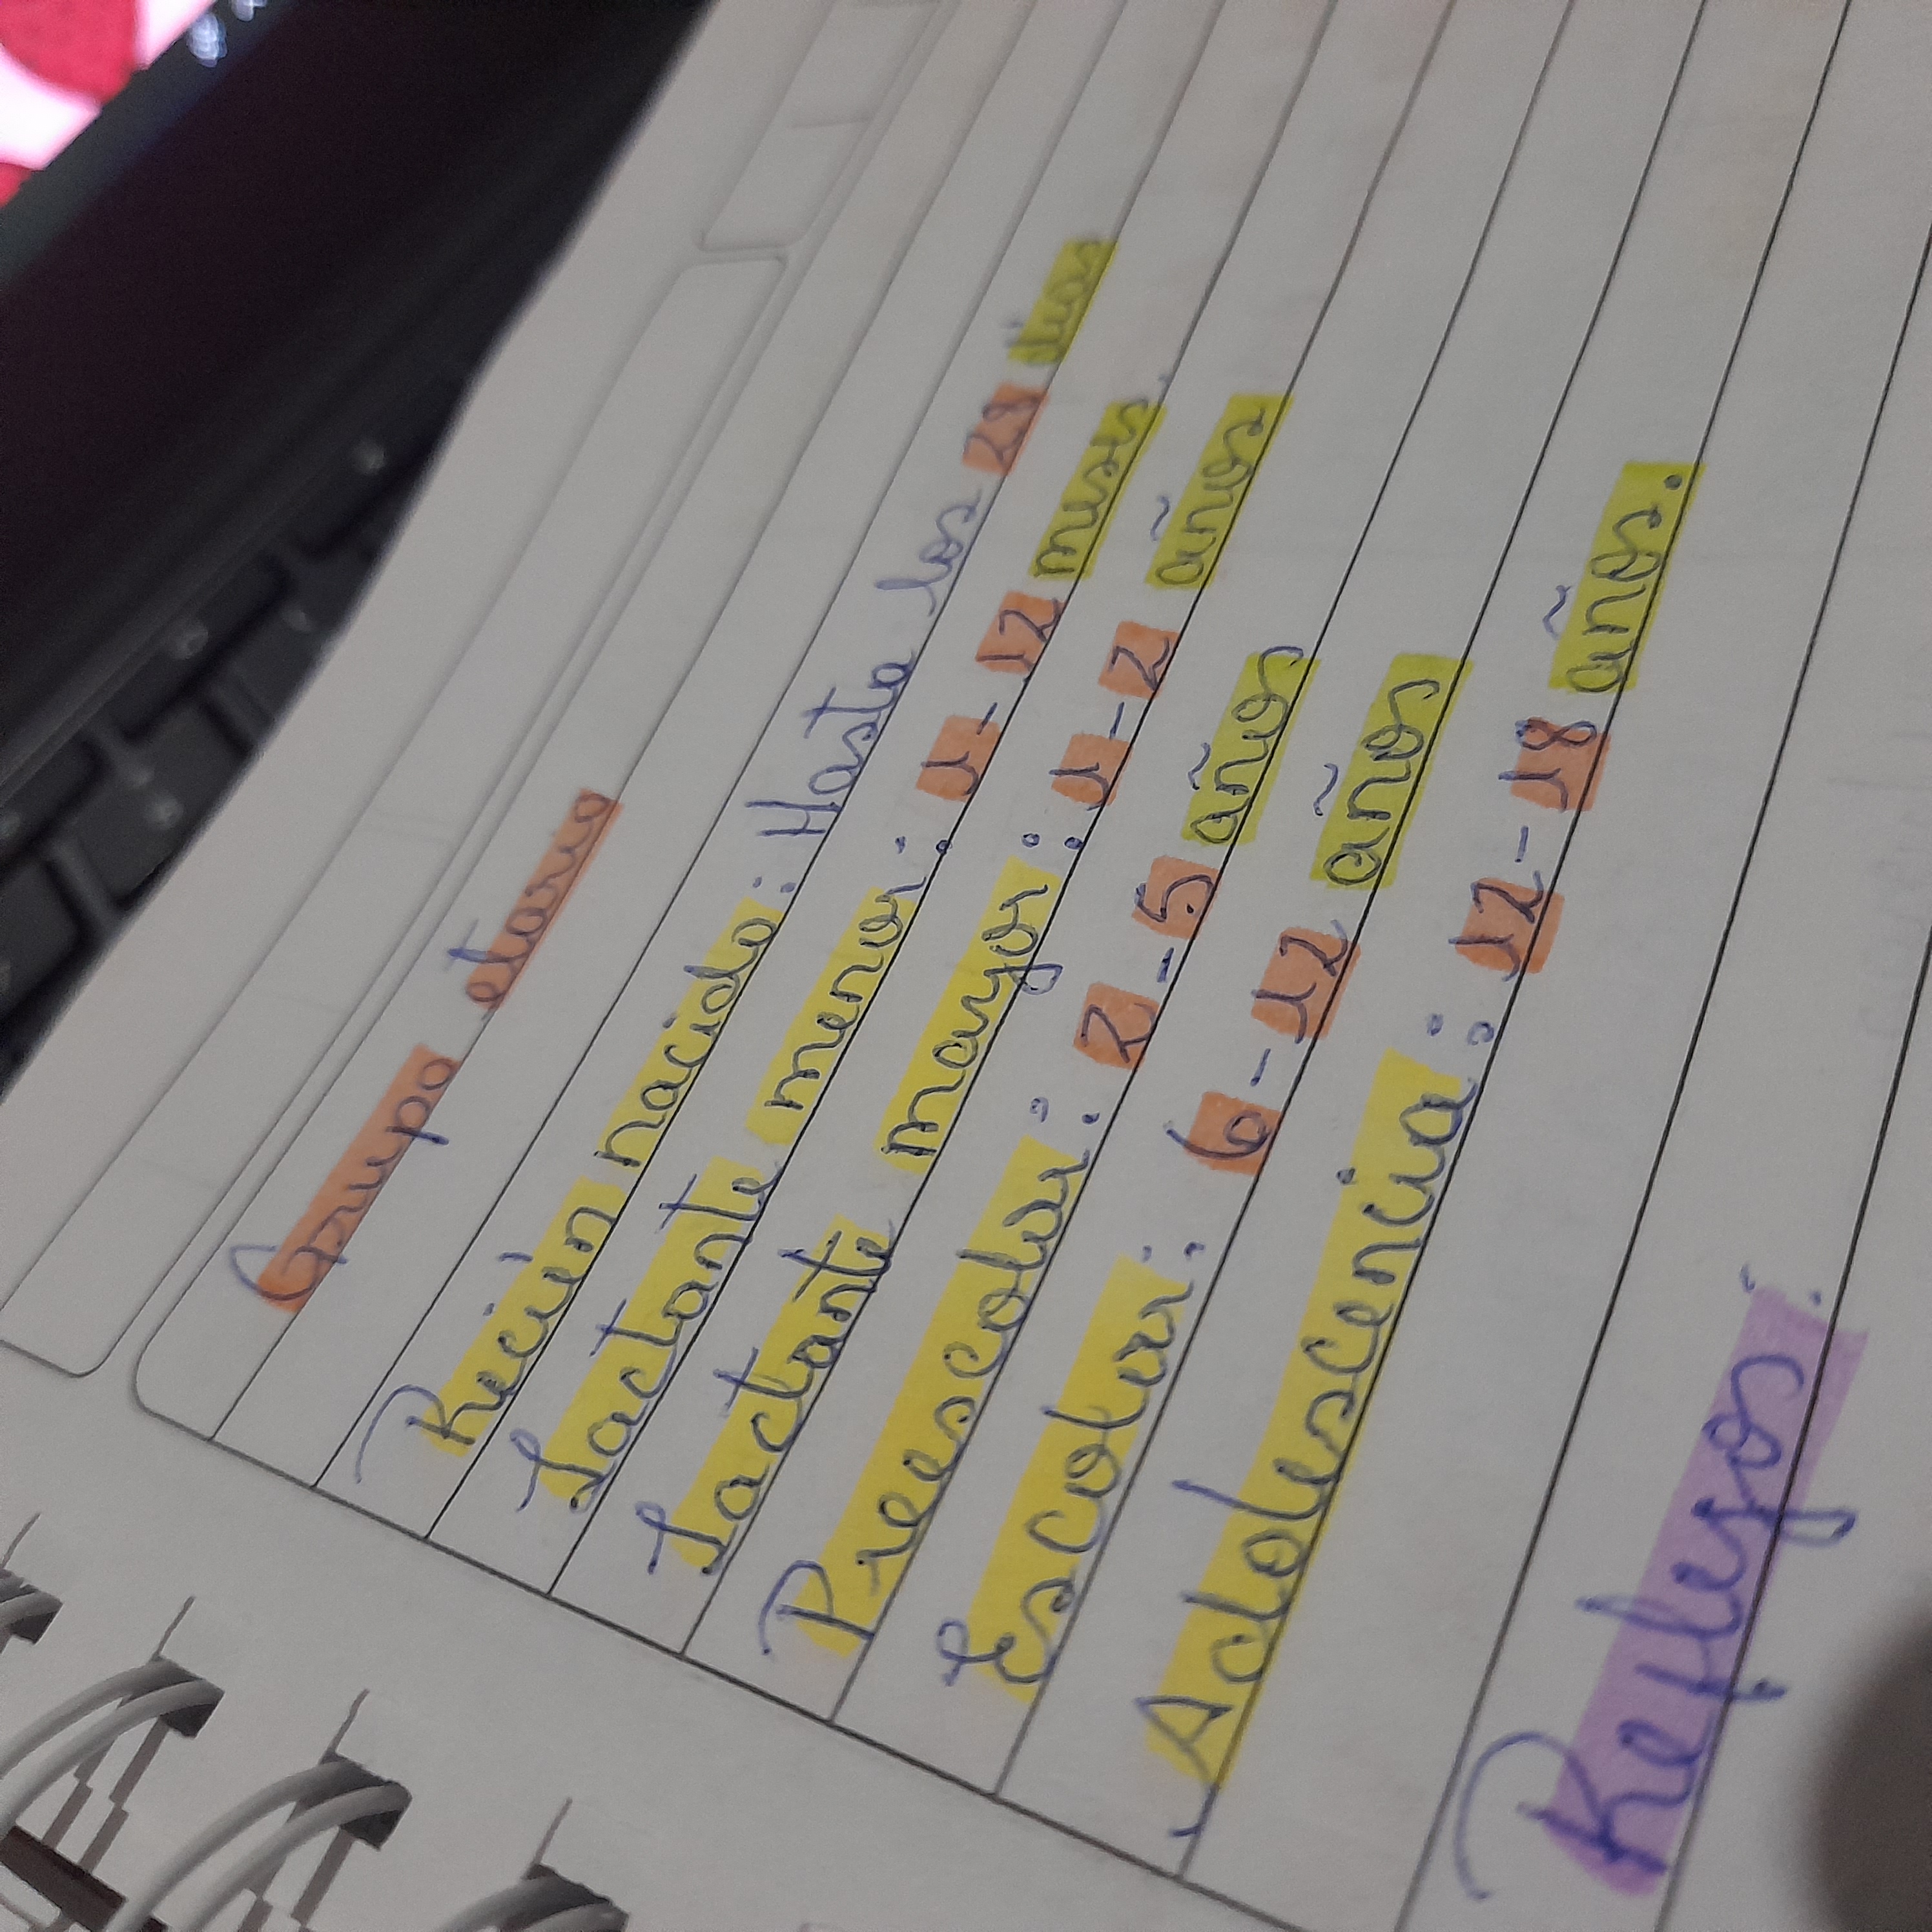 Grupo etario
Recien nacido: Hasta los 28 dias
Lactante menor: 1-12 meses.
Lactante mayor: 1-2 años
Preescolar: 2-5 años
Escolar: 6-12 años
Adolescencia: 12-18 años.
Reflejos: